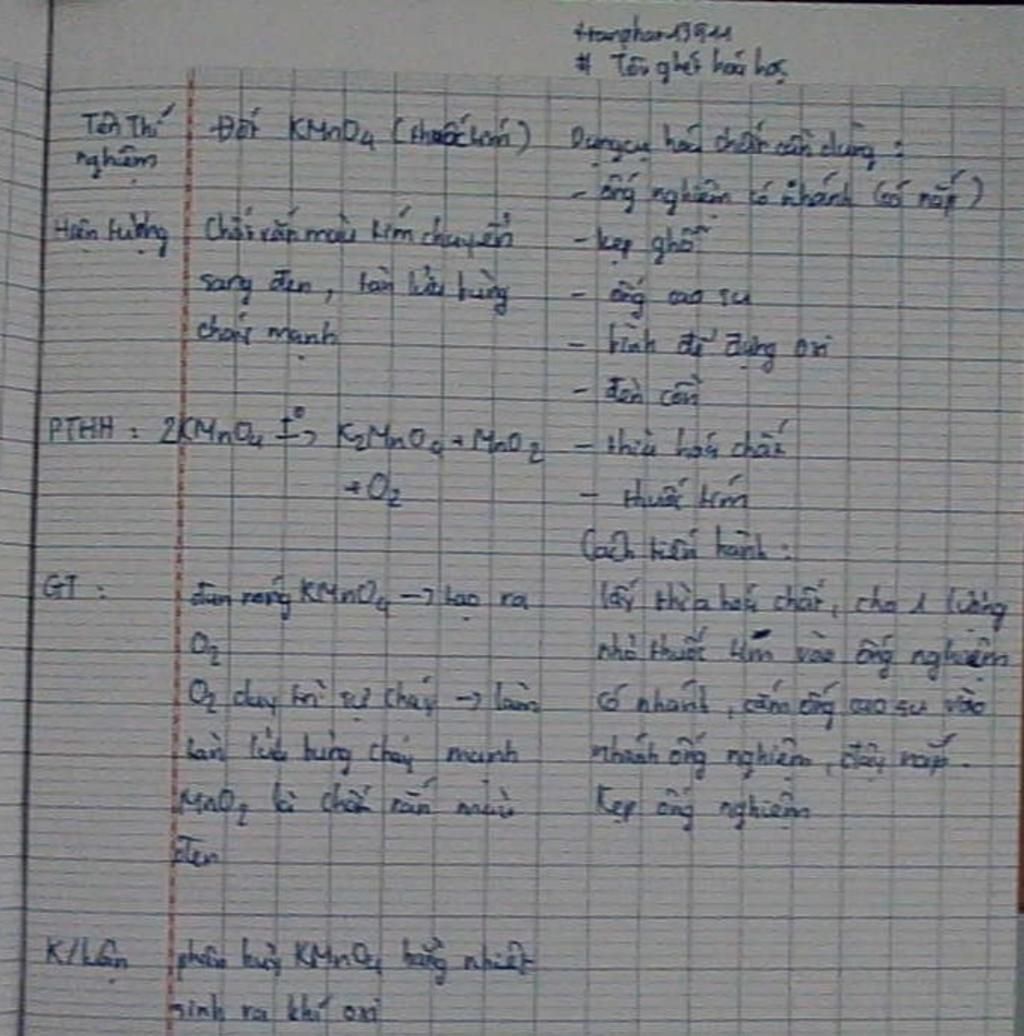 tranphan13911
# Tôi ghét hoá học
Tên Thí nghiệm
Đốt KMnO4 (thuốc tím)
Hiện tượng
Chất rắn màu tím chuyển
sang đen, tàn lửa bùng
cháy mạnh
PTHH : 2KMnO4 t° → K2MnO4 + MnO2
+ O2
GT :
đun nóng KMnO4 → tạo ra
O2
O2 duy trì sự cháy → làm
tàn lửa bùng cháy mạnh
MnO2 là chất rắn màu
đen
K/luận
phân huỷ KMnO4 bằng nhiệt
sinh ra khí oxi
Dụng cụ hoá chất cần dùng :
- ống nghiệm có nhánh (có nắp)
- kẹp ghỗ
- ống cao su
- bình để đựng oxi
- đèn cồn
- thìa hoá chất
- thuốc tím
Cách tiến hành :
lấy thìa hoá chất, cho 1 lượng
nhỏ thuốc tím vào ống nghiệm
có nhánh, cắm ống cao su vào
nhánh ống nghiệm, đậy nắp.
Kẹp ống nghiệm